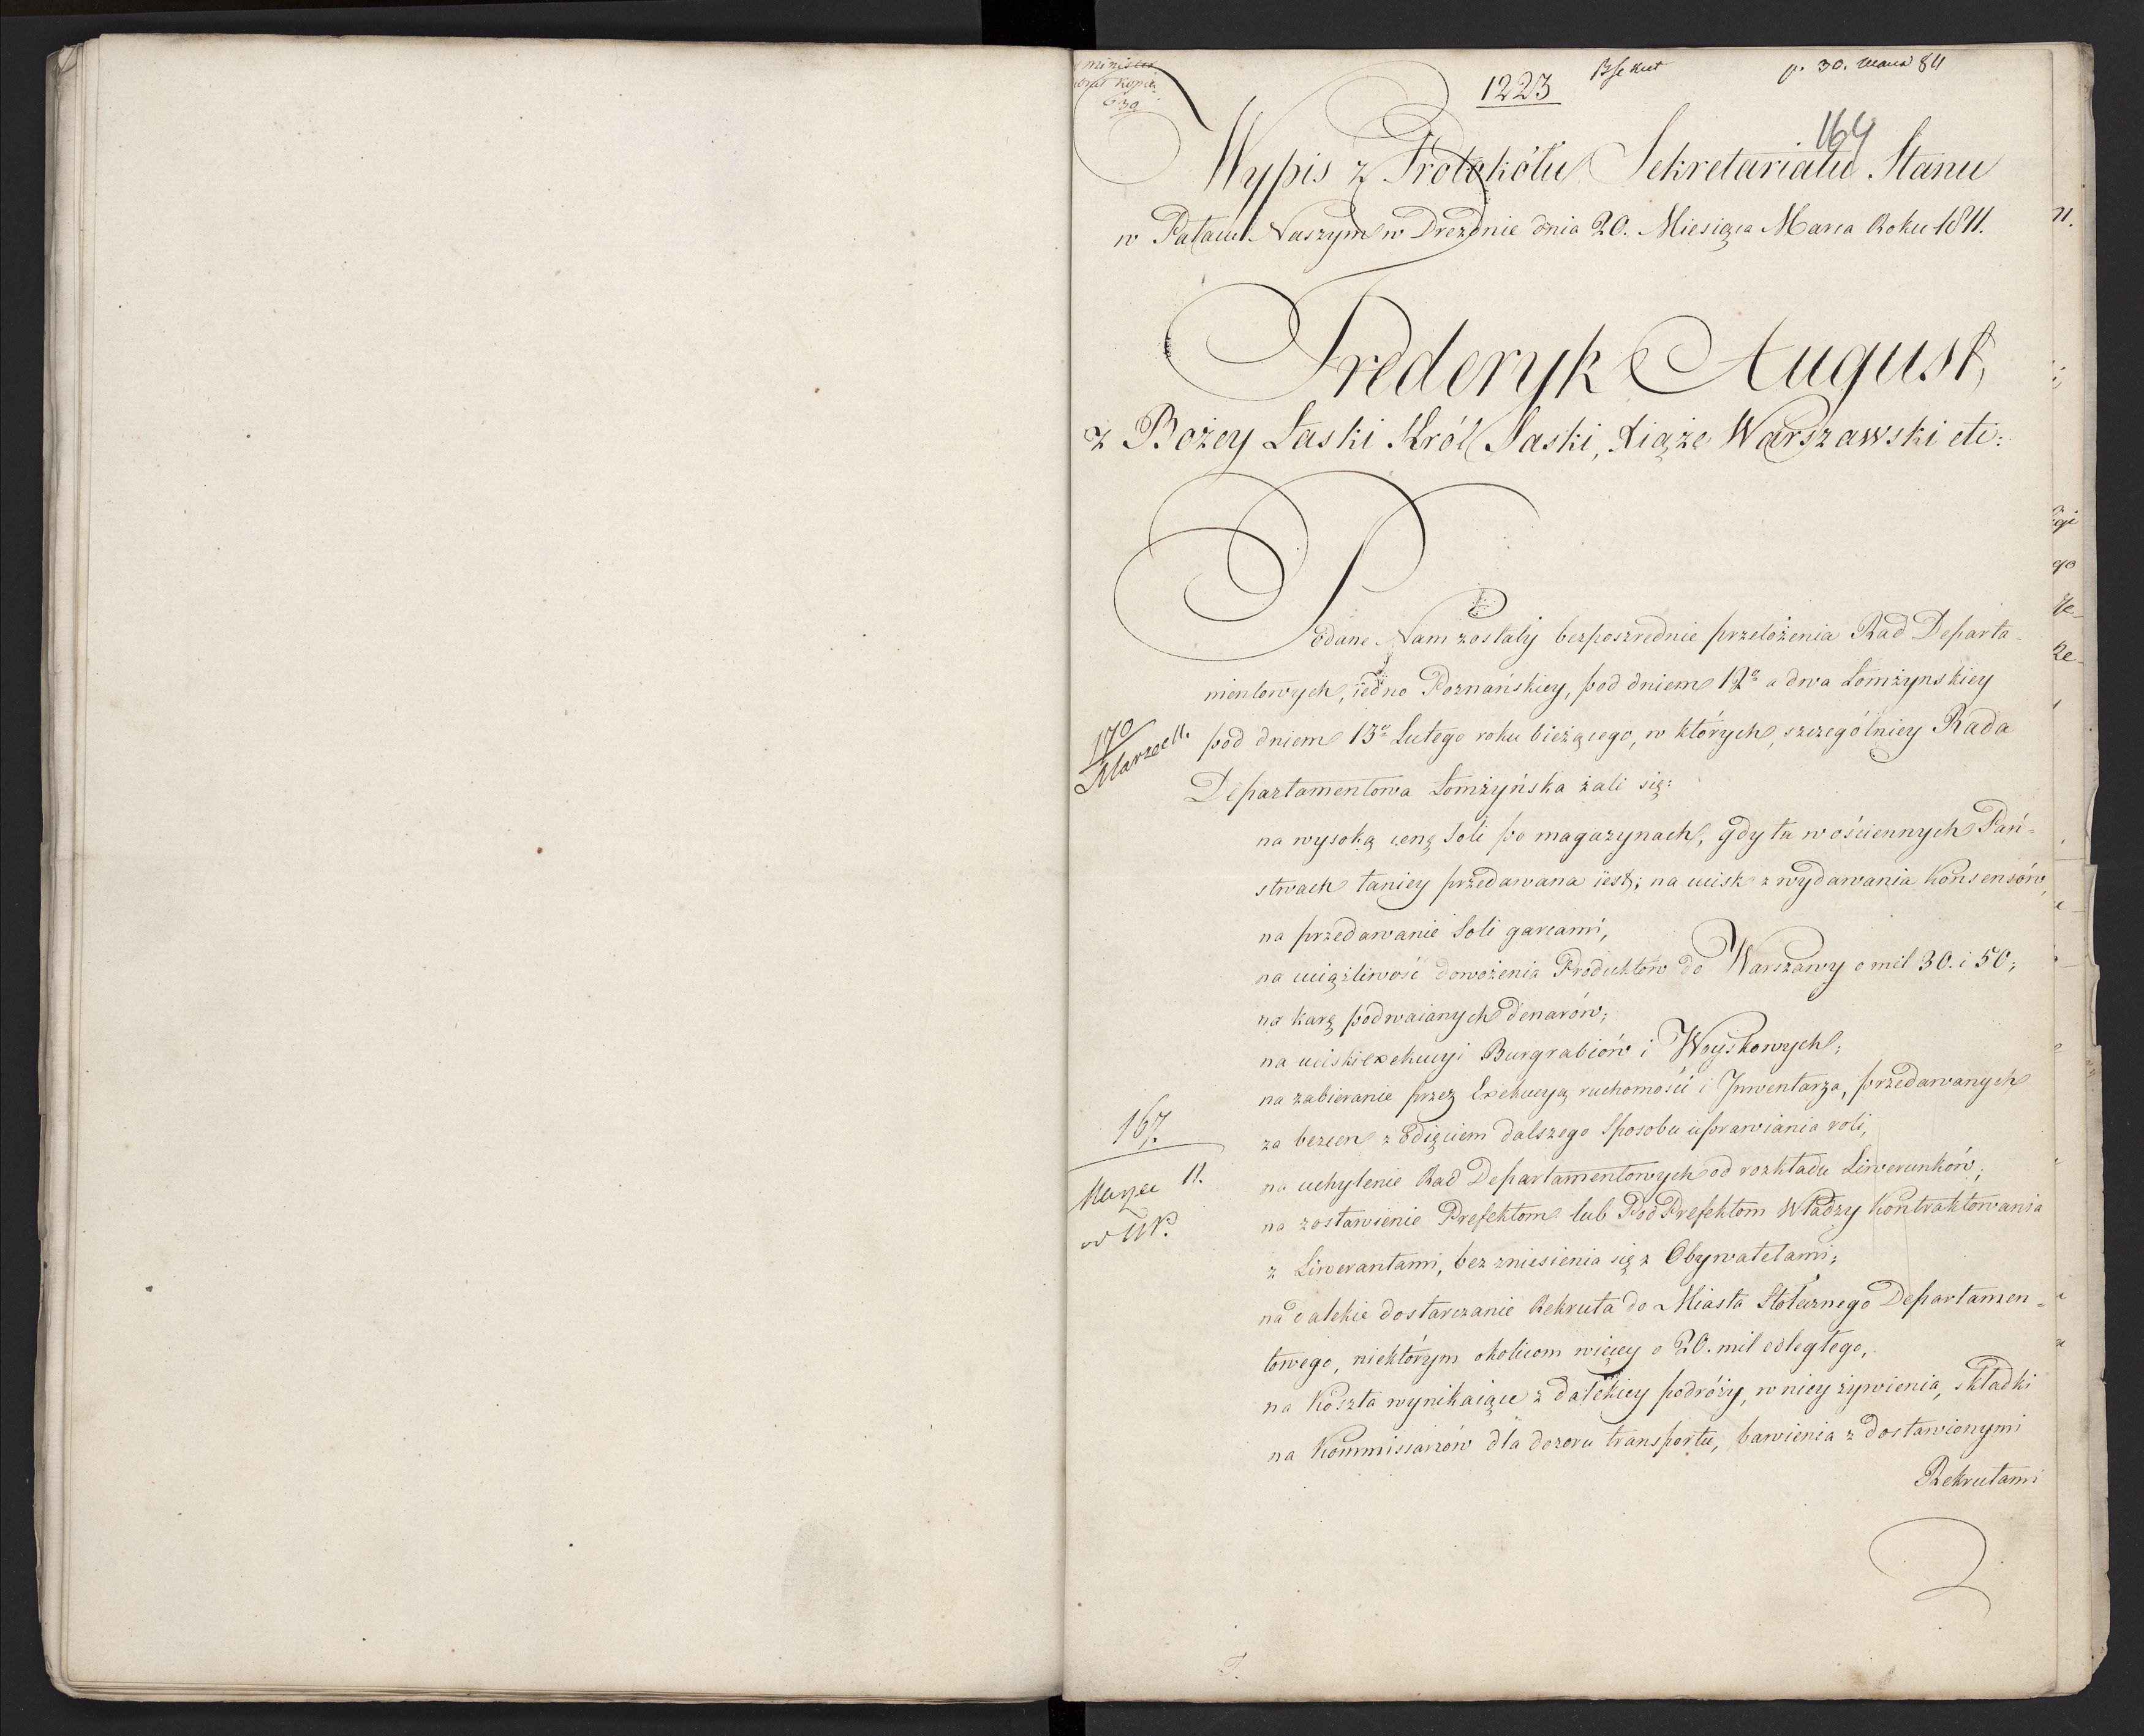 1223
p. 30. Marca 811
639
164
Wypis z Protokółu Sekretariatu Stanu
w Pałacu Naszym w Dreznie dnia 20. Miesiąca Marca Roku 1811.
Frederyk August,
z Bożey Łaski Król Saski, Xiąże Warszawski etc:
Podane Nam zostały bezposzrednie przełożenia Rad Departa-
mentowych, iedno Poznańskiey, pod dniem 12º a dwa Łomżynskiey
pod dniem 13º Lutego roku bieżącego, w których, szczególniey Rada
Departamentowa Łomżyńska żali się:
170
Marzec 11.
na wysoką cenę Soli po magazynach, gdy ta w ościennych Pań-
stwach taniey przedawana iest; na ucisk z wydawania Konsensów,
na przedawanie Soli garcami,
na uciążliwość dowożenia Produktów do Warszawy o mil 30. i 50;
na karę podwaianych denarów;
na uciski exekucyi Burgrabiów i Woyskowych;
na zabieranie przez Exekucyą ruchomości i Inwentarza, przedawanych
za bezcen z odięciem dalszego Sposobu uprawiania roli,
na uchylenie Rad Departamentowych od rozkładu Liwerunków;
na zostawienie Prefektom lub PodPrefektom Władzy Kontraktowania
z Liwerantami, bez zniesienia się z Obywatelami;
167.
Marzec 11.
na dalekie dostarczanie Rekruta do Miasta Stołecznego Departamen-
towego, niektórym okolicom więcey o 20. mil odległego,
na Koszta wynikaiące z dalekiey podróży, w niey żywienia, składki
na Kommissarzów dla dozoru transportu, bawienia z dostawionymi
Rekrutami